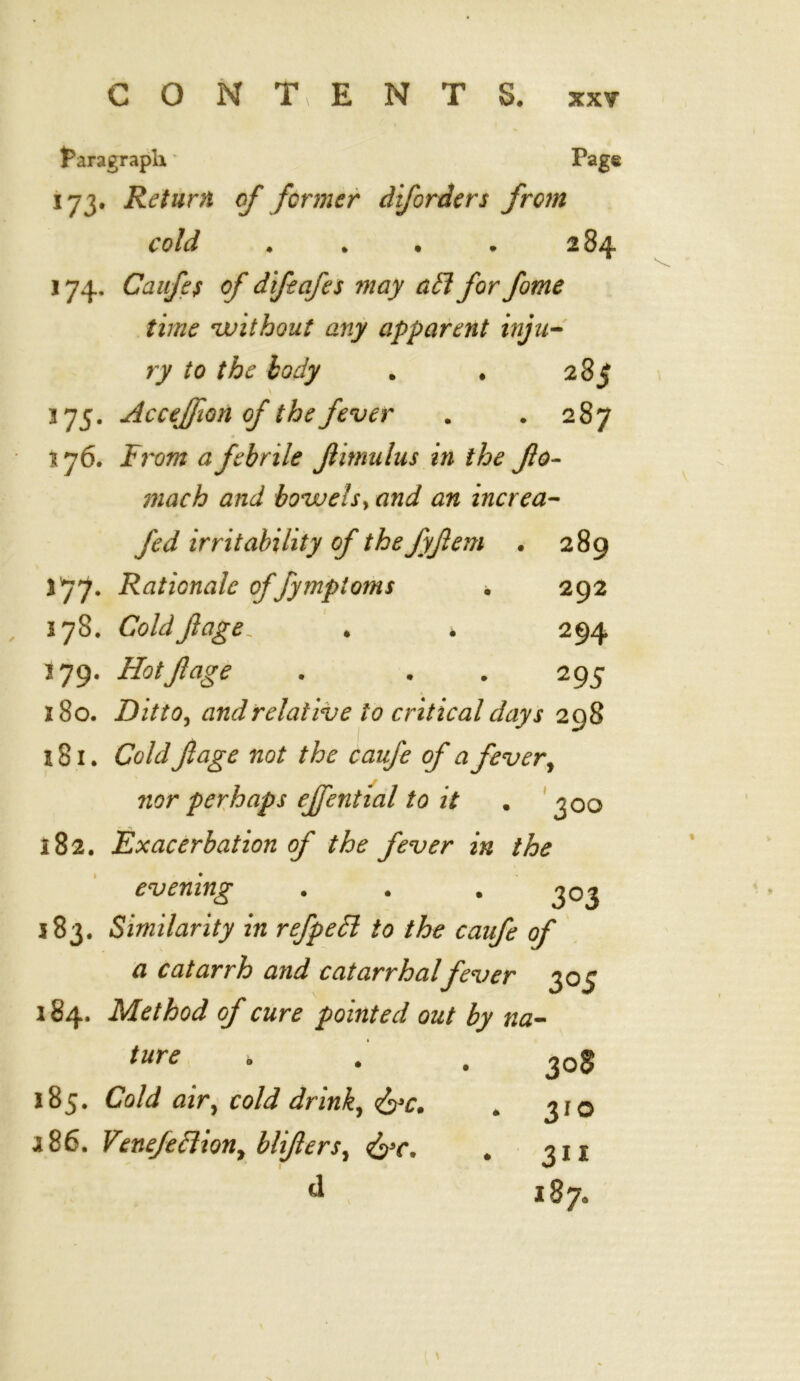 CONTENTS. xxv
Paragraph Page
173. Return of former diſorders from
cold . . . . 284
174. Cauſes of diſeaſes may act for ſome
time without any apparent inju-
ry to the body . . 285
175. Acceſſion of the fever . . 287
176. From a febrile ſtimulus in the ſto-
mach and bowels, and an increa-
ſed irritability of the ſyſtem . 289
177. Rationale of ſymptoms . 292
178. Cold ſtage . . 294
179. Hot ſtage . . . 295
180. Ditto, and relative to critical days 298
181. Cold ſtage not the cauſe of a fever,
nor perhaps eſſential to it . 300
182. Exacerbation of the fever in the
evening . . . 303
183. Similarity in reſpect to the cauſe of
a catarrh and catarrhal fever 305
184. Method of cure pointed out by na-
ture . . . 308
185. Cold air, cold drink, &c. . 310
186. Veneſection, bliſters, &c. . 311
d 187.